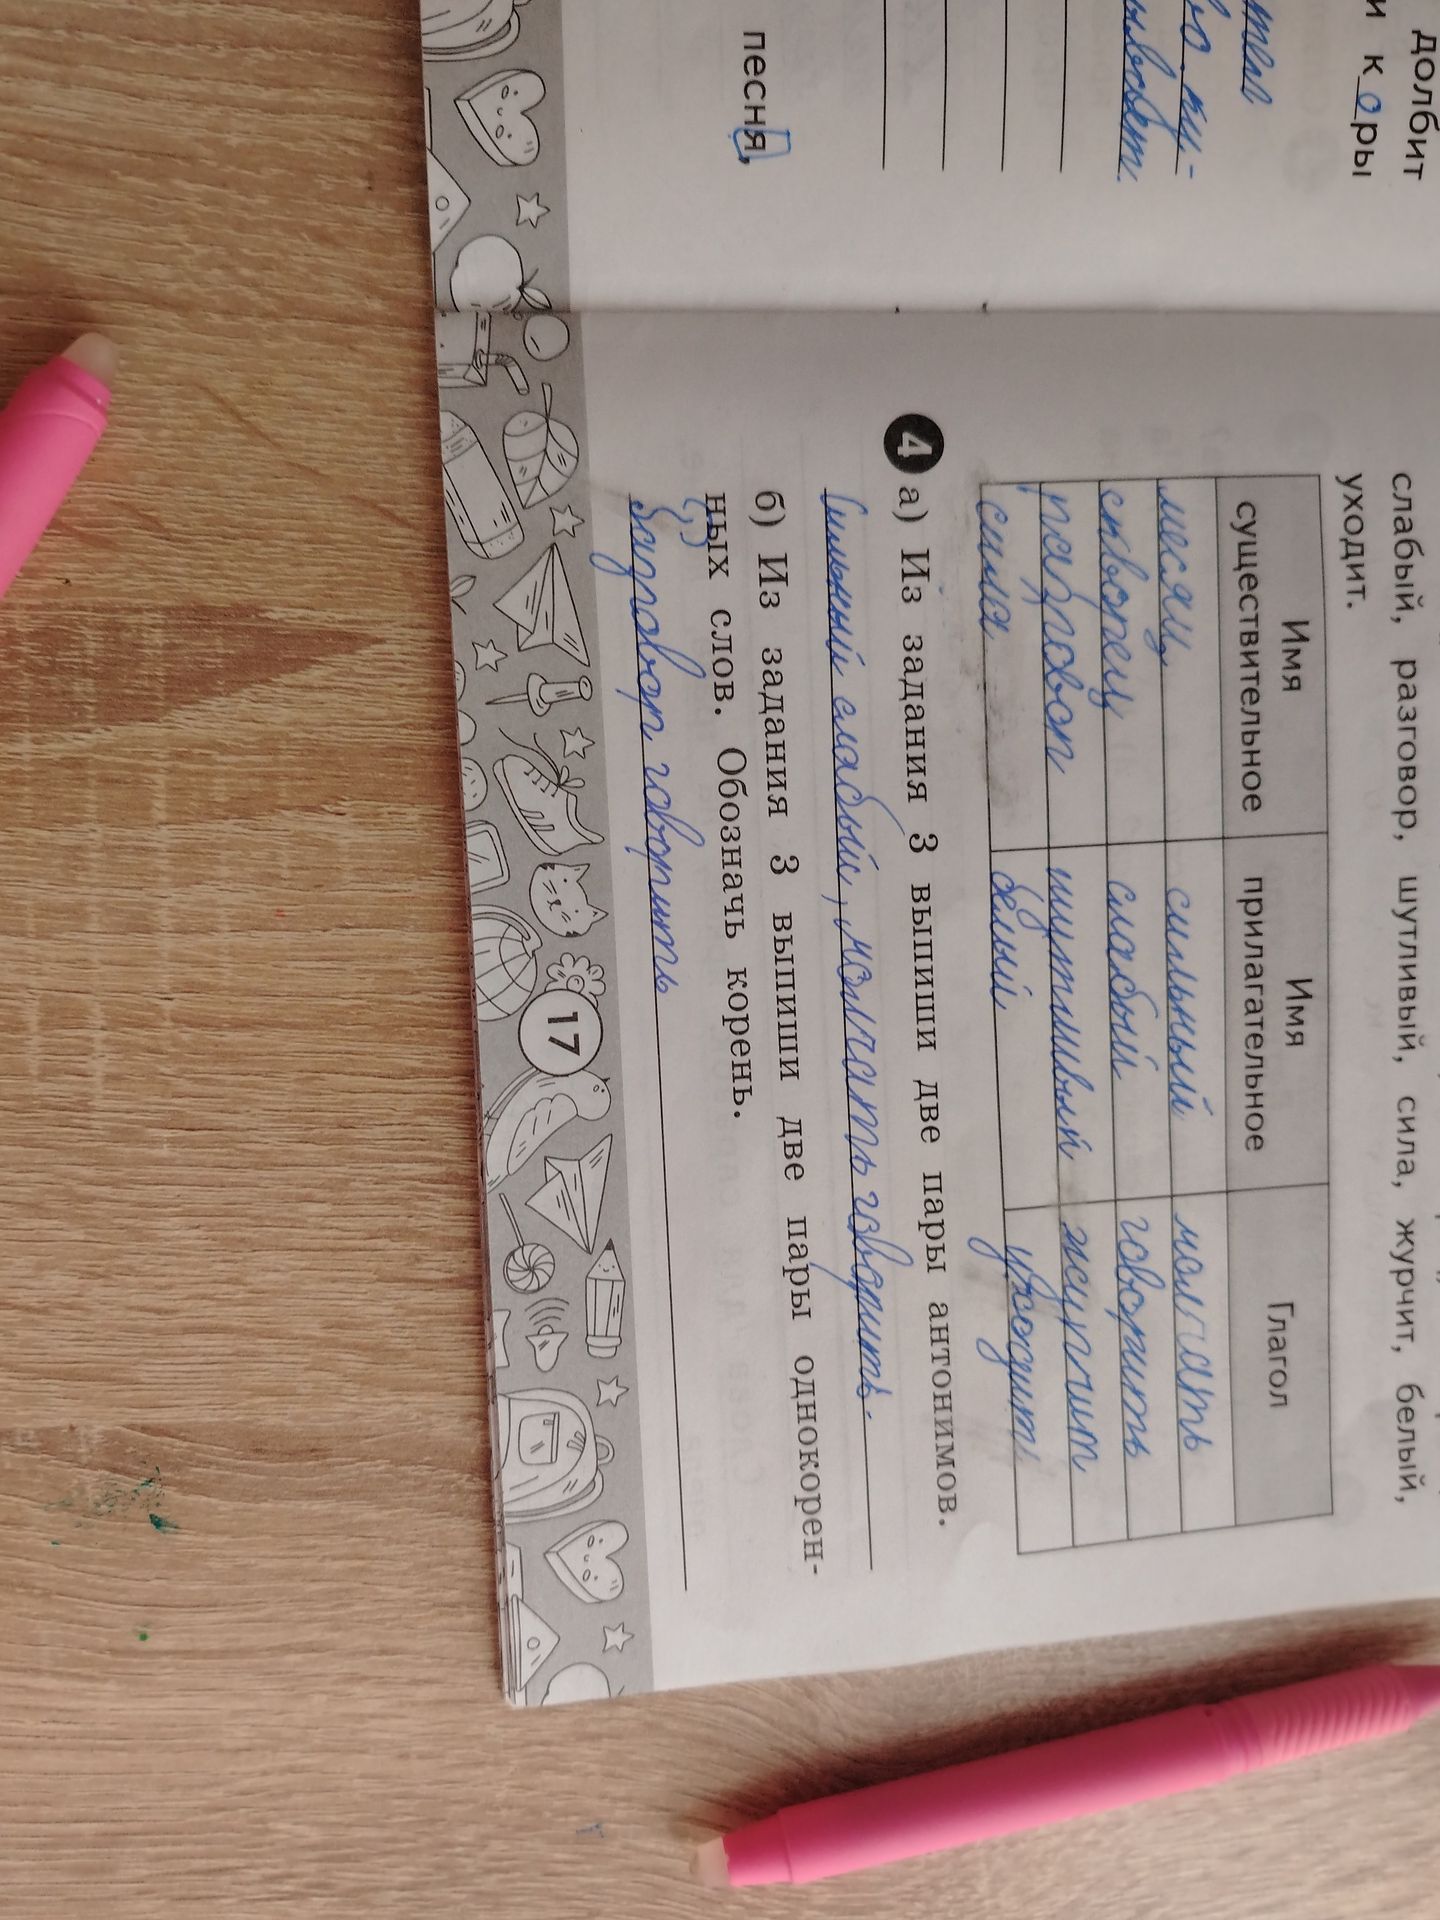 долбит
и к о ры
во-ку-
песня,
слабый, разговор, шутливый, сила, журчит, белый,
уходит.
Имя существительное Имя прилагательное Глагол
месяц сильный молчать
скворец слабый говорить
разговор шутливый журчит
сила белый уходит
4 а) Из задания 3 выпиши две пары антонимов.
Сильный слабый, молчать говорить.
б) Из задания 3 выпиши две пары однокорен-
ных слов. Обозначь корень.
Разговор говорить
17